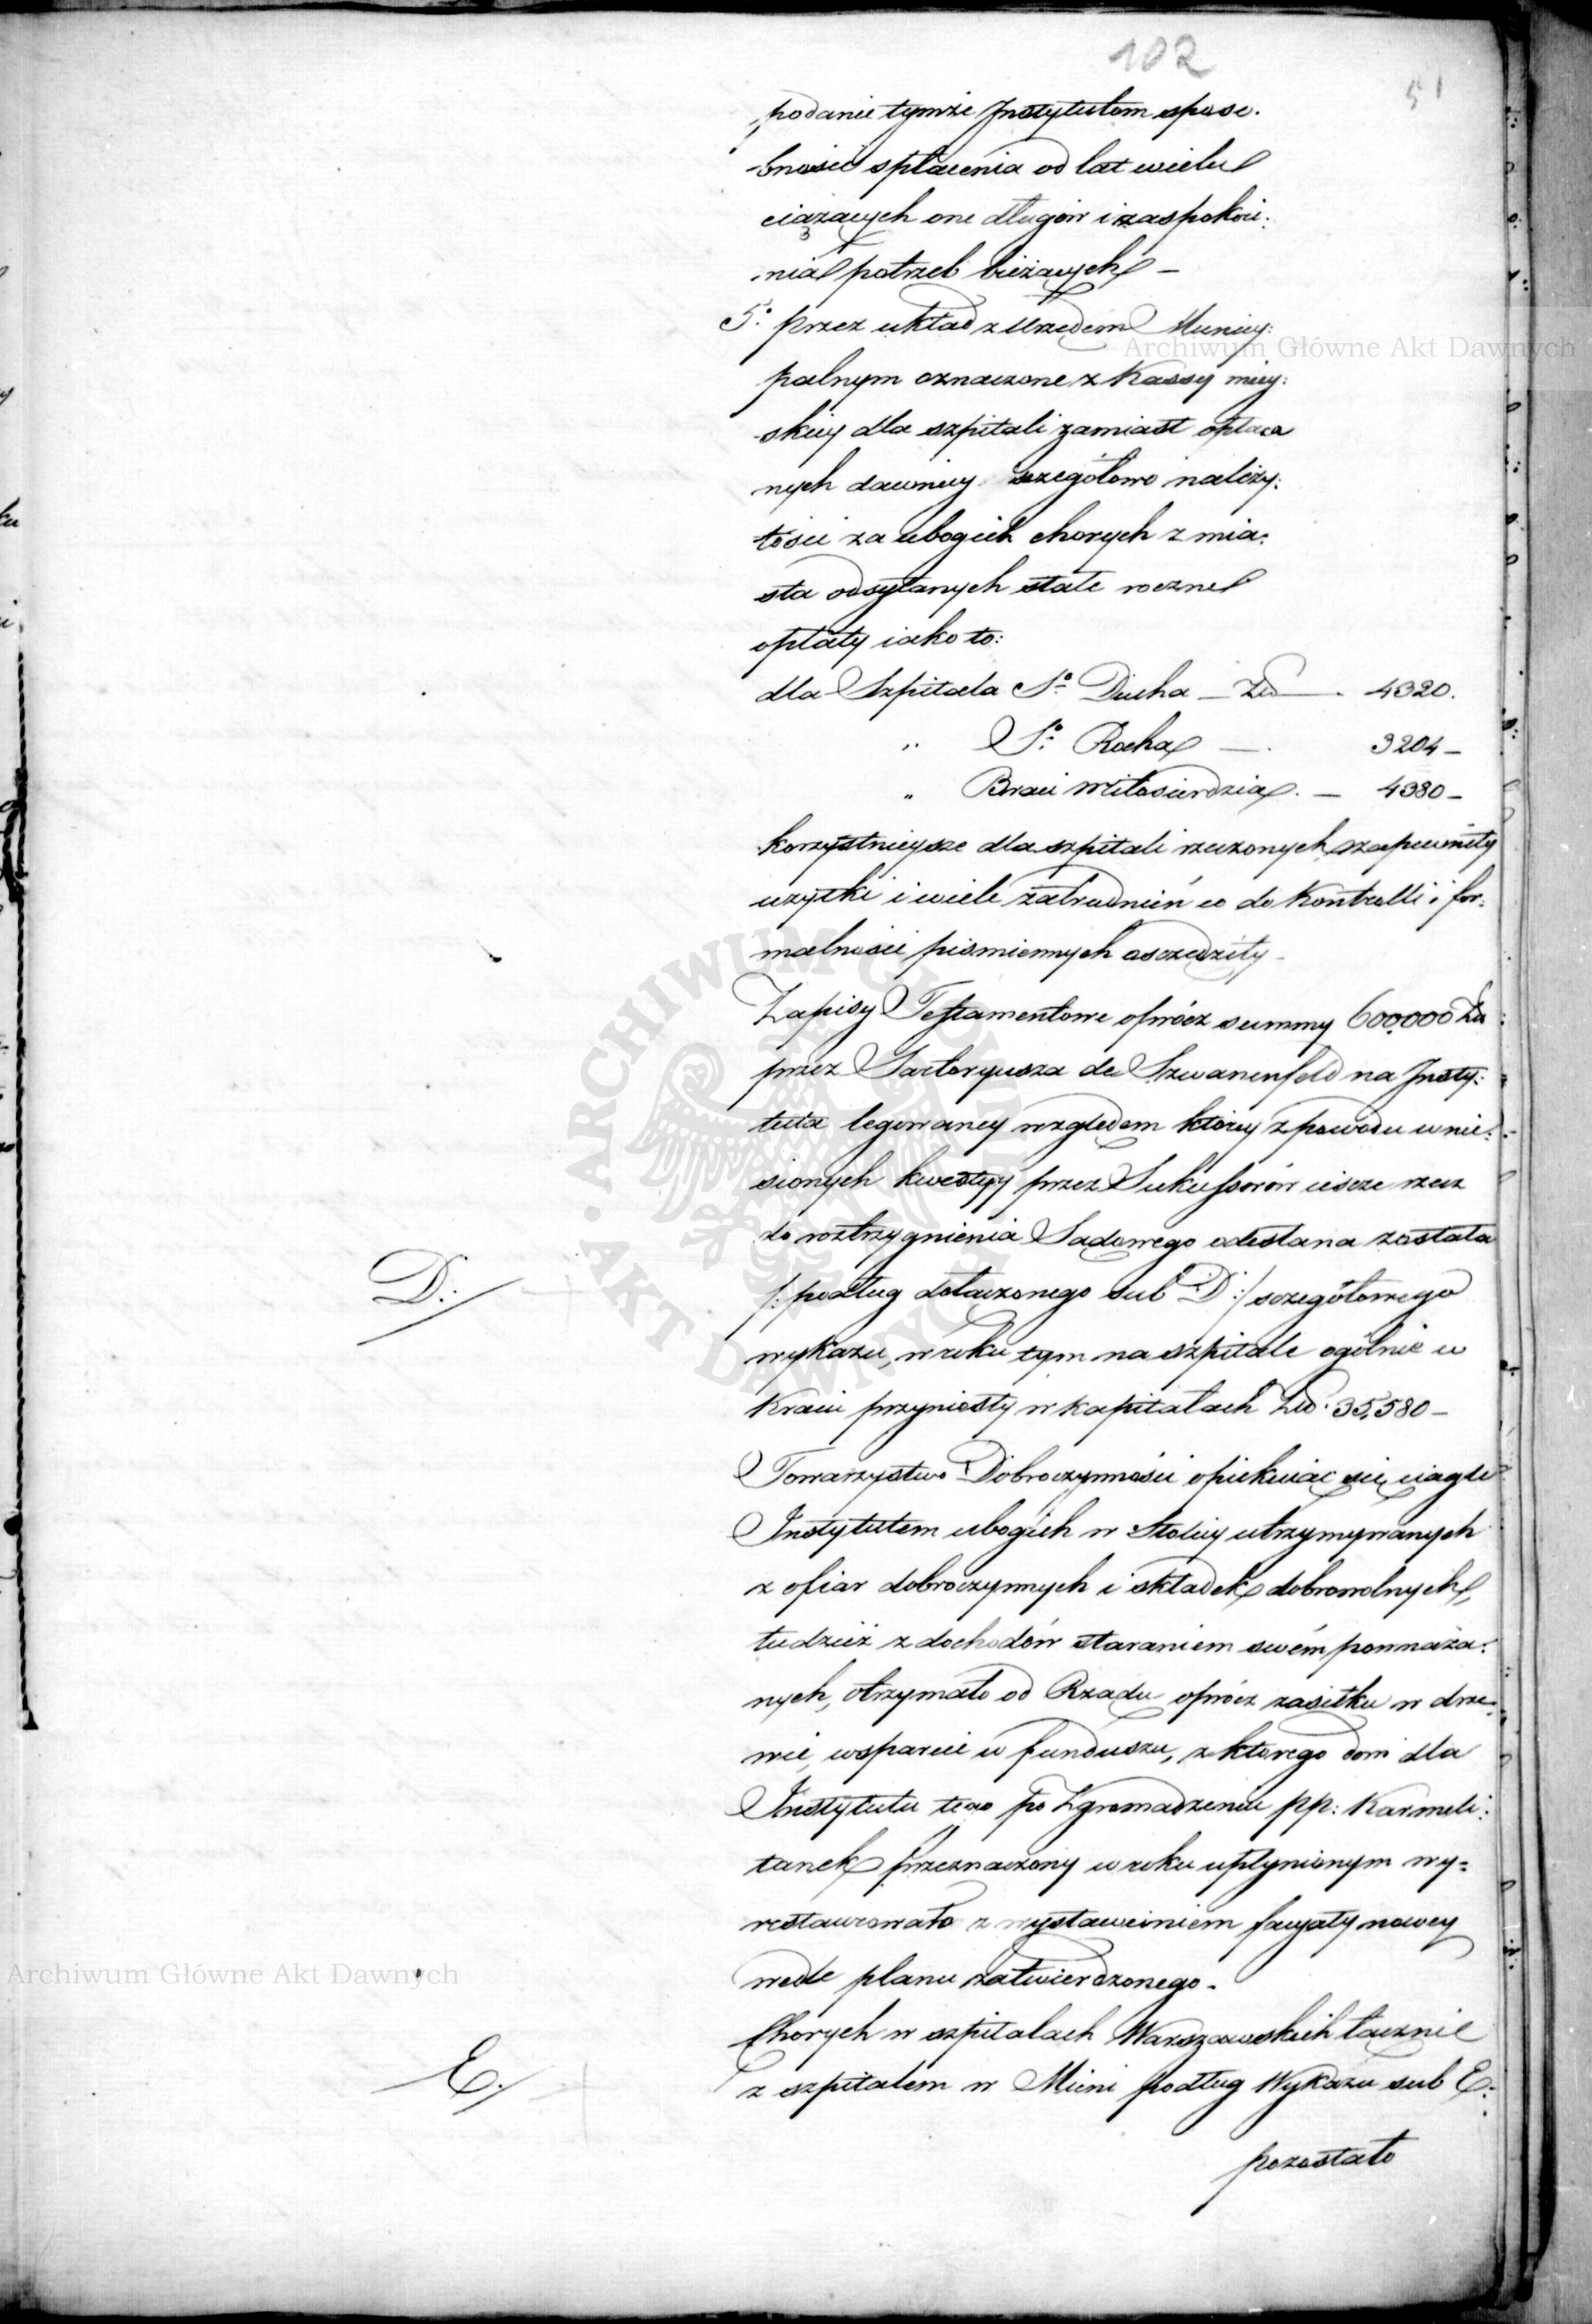 102
51
podanie tymże Instytutom sposo.
-bności spłacenia od lat wielu
ciążących one długów i zaspokoie:
-nia potrzeb bieżących –
5° przez układ z Urzędem Municy:
palnym oznaczone z Kassy miey:
skiey dla szpitali zamiast opłaca
nych dawniey szczegółowo należy:
tości za ubogich chorych z mia:
sta odsyłanych stałe roczne
opłaty iako to:
dla Szpitala S° Ducha – Złł – 4320.
" S° Rocha – 3204 –
" Braci Miłosierdzia. – 4380 –
korzystnieysze dla szpitali rzeczonych zapewniły
użytki i wiele zatrudnień co do Kontrolli i for:
malności piśmiennych oszczędziły –
Zapisy Testamentowe oprócz summy 600,000 Złł
przez Sartoryusza de Szwanenfeld na Insty:
tuta legowaney względem którey z powodu wnie:
sionych kwestyy przez Sukcessorów ieszcze rzecz
do roztrzygnienia Sądowego odesłana została
D:/
/: podług dołączonego sub D :/ szczegółowego
wykazu, w roku tym na szpitale ogólnie w
Kraiu przyniosły w kapitałach Złł. 35,580 –
Towarzystwo Dobroczynności opiekuiąc się ciągle
Instytutem ubogich w Stolicy utrzymywanych
z ofiar dobroczynnych i składek dobrowolnych,
tudzież z dochodów staraniem swém pomnaża:
nych, otrzymało od Rządu oprócz zasiłku w drze:
wie, wsparcie w funduszu, z którego dom dla
Instytutu tego po Zgromadzeniu pp: Karmeli:
tanek przeznaczony w roku upłynionym wy=
restaurowało z wystawieniem facyaty nowey
wedle planu zatwierdzonego –
Chorych w szpitalach Warszawskich łącznie
E:/
z szpitalem w Mieni podług Wykazu sub E:
pozostało
Archiwum Główne Akt Dawnych
Archiwum Główne Akt Dawnych
ARCHIWUM GŁÓWNE · AKT DAWNYCH